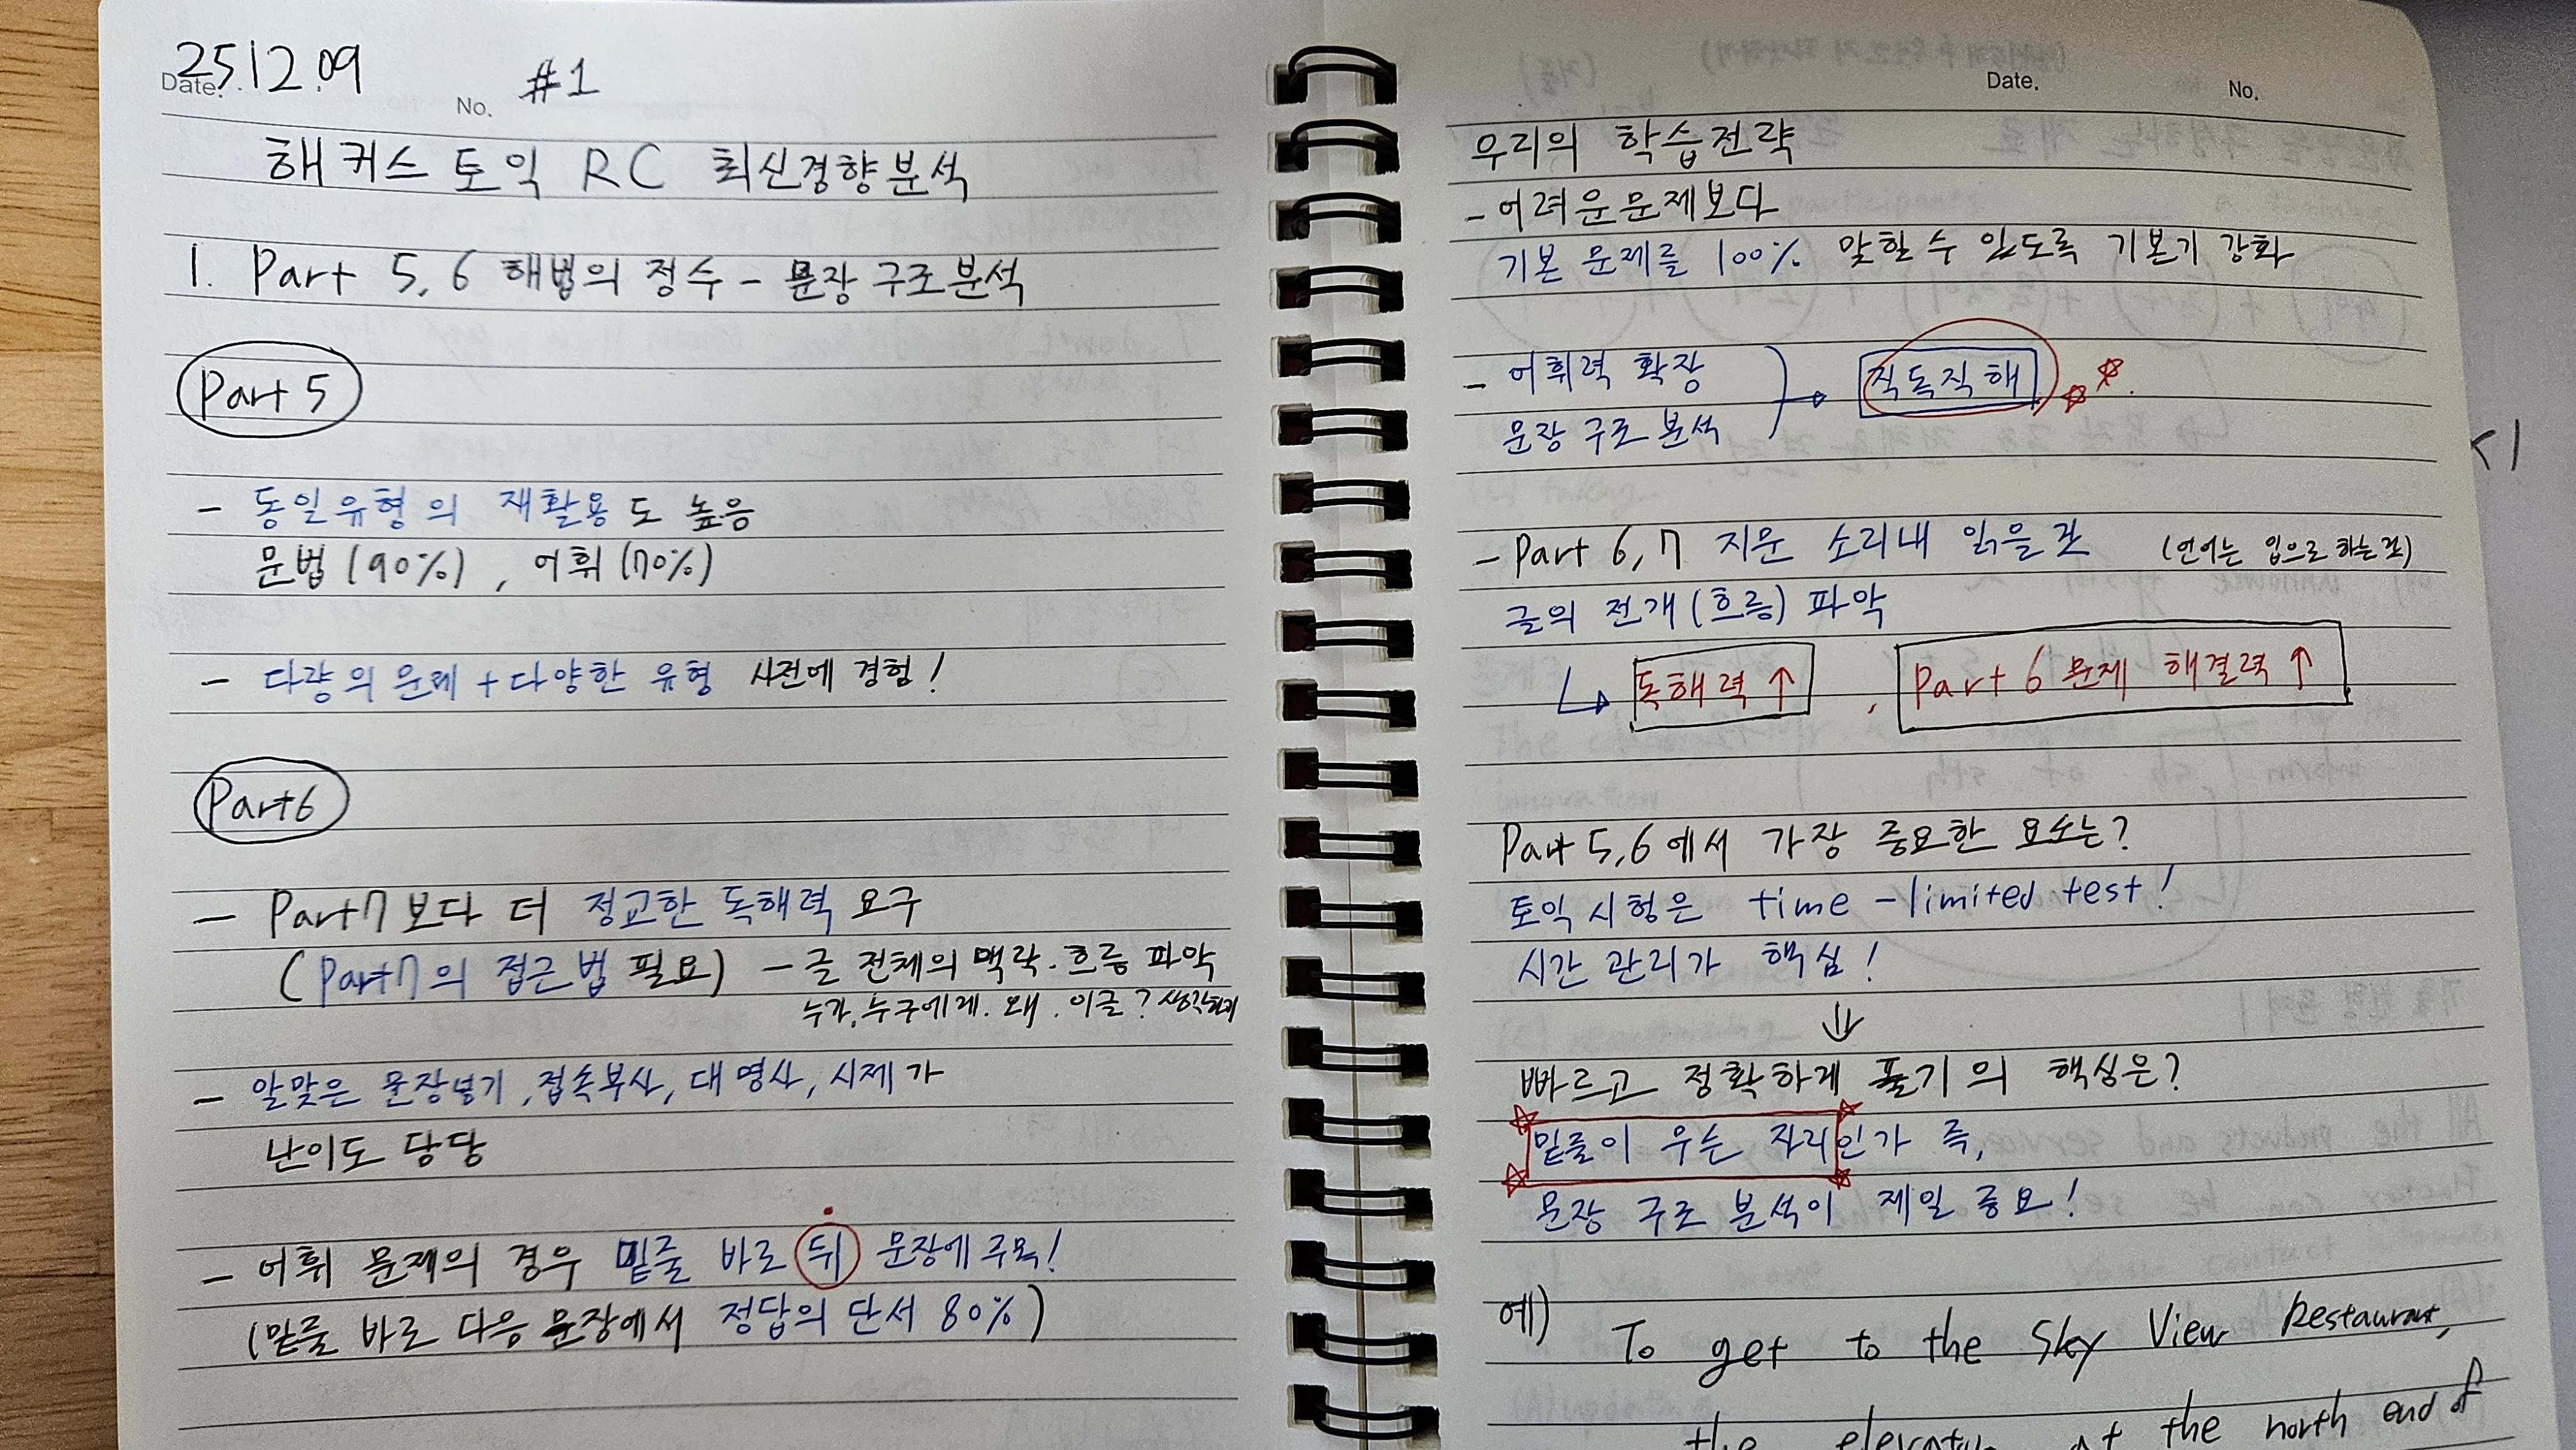 25.12.09
Date.
No.
#1
해커스 토익 RC 최신경향분석
1. Part 5, 6 해법의 정수 - 문장 구조분석
Part 5
- 동일유형의 재활용도 높음
문법(90%), 어휘(70%)
- 다량의 문제 + 다양한 유형 사전에 경험!
Part6
- Part7보다 더 정교한 독해력 요구
(Part7의 접근법 필요) - 글 전체의 맥락·흐름 파악
누가, 누구에게. 왜. 이글?
- 알맞은 문장넣기, 접속부사, 대명사, 시제가
난이도 당당
- 어휘 문제의 경우 밑줄 바로 뒤 문장에 주목!
(밑줄 바로 다음 문장에서 정답의 단서 80%)
Date.
No.
우리의 학습전략
- 어려운문제보다
기본 문제를 100% 맞힐 수 있도록 기본기 강화
- 어휘력 확장
문장 구조 분석
직독직해
- Part 6, 7 지문 소리내 읽을것 (언어는 입으로 하는것)
글의 전개(흐름) 파악
독해력 ↑, Part 6 문제 해결력 ↑
Part 5,6에서 가장 중요한 요소는?
토익시험은 time-limited test!
시간 관리가 핵심!
빠르고 정확하게 풀기의 핵심은?
밑줄이 우는 자리인가 즉,
문장 구조 분석이 제일 중요!
예) To get to the Sky View Restaurant,
the elevator at the north end of